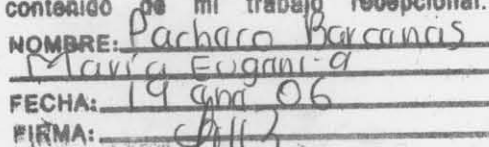 contenido de mi trabajo recepcional.
NOMBRE: Pacheco Barcenas
María Eugenia
FECHA: 19 ene 06
FIRMA: